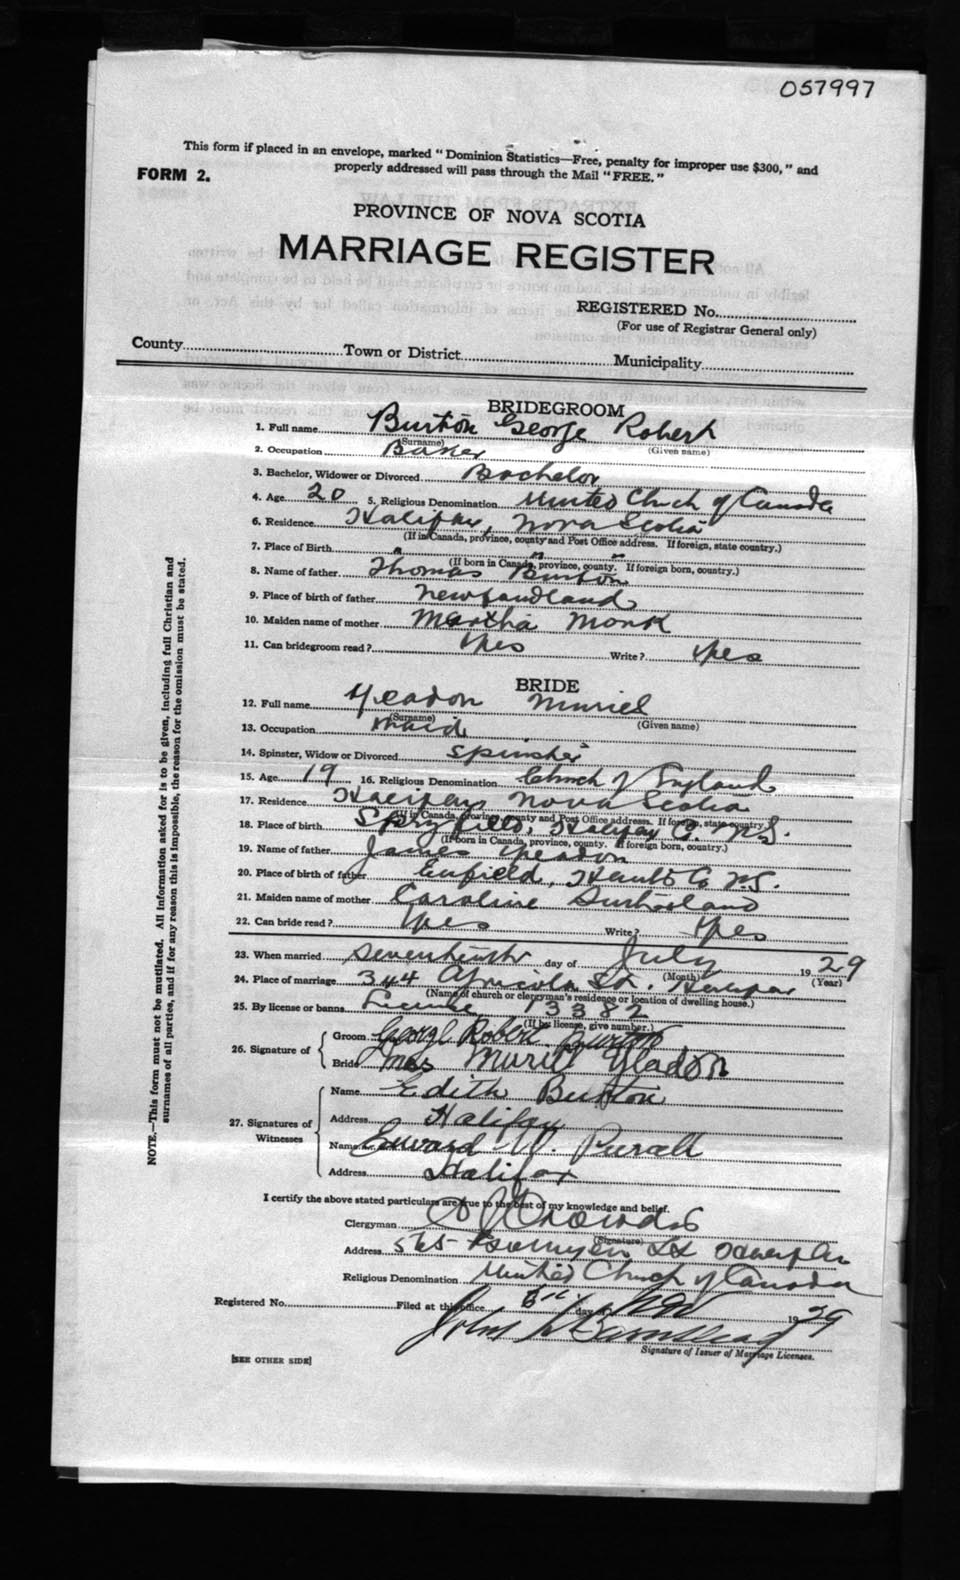 057997
This form if placed in an envelope, marked "Dominion Statistics—Free, penalty for improper use $300," and
properly addressed will pass through the Mail "FREE."
FORM 2.
PROVINCE OF NOVA SCOTIA
MARRIAGE REGISTER
REGISTERED No.
(For use of Registrar General only)
County Town or District Municipality
BRIDEGROOM
1. Full name Burton George Robert
(Surname) (Given name)
2. Occupation Baker
3. Bachelor, Widower or Divorced Bachelor
4. Age 20 5. Religious Denomination United Church of Canada
6. Residence Halifax, Nova Scotia
(If in Canada, province, county and Post Office address. If foreign, state country.)
7. Place of Birth " " "
(If born in Canada, province, county. If foreign born, country.)
8. Name of father Thomas Burton
9. Place of birth of father Newfoundland
10. Maiden name of mother Martha Monk
11. Can bridegroom read? Yes Write? Yes
BRIDE
12. Full name Yeadon Muriel
(Surname) (Given name)
13. Occupation Maid
14. Spinster, Widow or Divorced Spinster
15. Age 19 16. Religious Denomination Church of England
17. Residence Halifax Nova Scotia
(If in Canada, province, county and Post Office address. If foreign, state country.)
18. Place of birth Spryfield, Halifax Co. N.S.
(If born in Canada, province, county. If foreign born, country.)
19. Name of father James Yeadon
20. Place of birth of father Enfield, Hants Co N.S.
21. Maiden name of mother Caroline Sutherland
22. Can bride read? Yes Write? Yes
23. When married Seventeenth day of July 1929
(Month) (Year)
24. Place of marriage 344 Agricola St. Halifax
(Name of church or clergyman's residence or location of dwelling house.)
25. By license or banns License 13382
(If by license, give number.)
26. Signature of
Groom George Robert Burton
Bride Miss Muriel Yeadon
27. Signatures of Witnesses
Name Edith Burton
Address Halifax
Name Edward W.
Address Halifax
I certify the above stated particulars are true to the best of my knowledge and belief.
Clergyman
(Signature)
Address 565
Religious Denomination United Church of Canada
Registered No. Filed at this office 6th day of 1929
Signature of Issuer of Marriage Licenses.
[SEE OTHER SIDE]
NOTE.—This form must not be mutilated. All information asked for is to be given, including full Christian and
surnames of all parties, and if for any reason this is impossible, the reason for the omission must be stated.